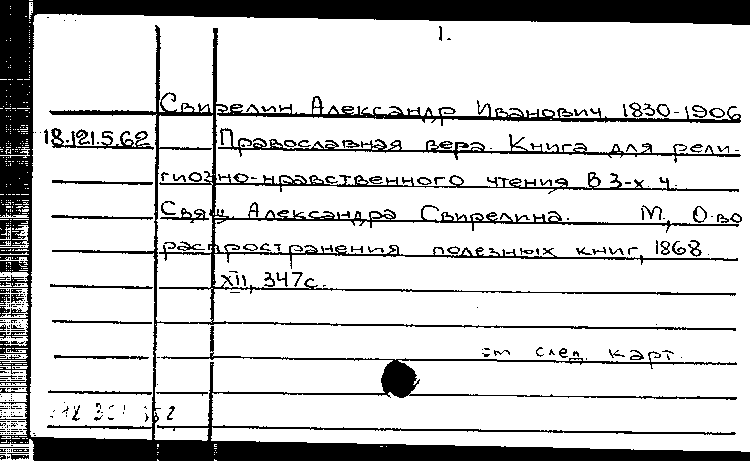 1.
Свирелин Александр Иванович 1830-1906
18.121.5.62 Православная вера. Книга для рели-
гиозно-нравственного чтения В 3-х ч.
Свящ. Александра Свирелина. М., О-во
распространения полезных книг, 1868.
XII, 347с.
след. карт.